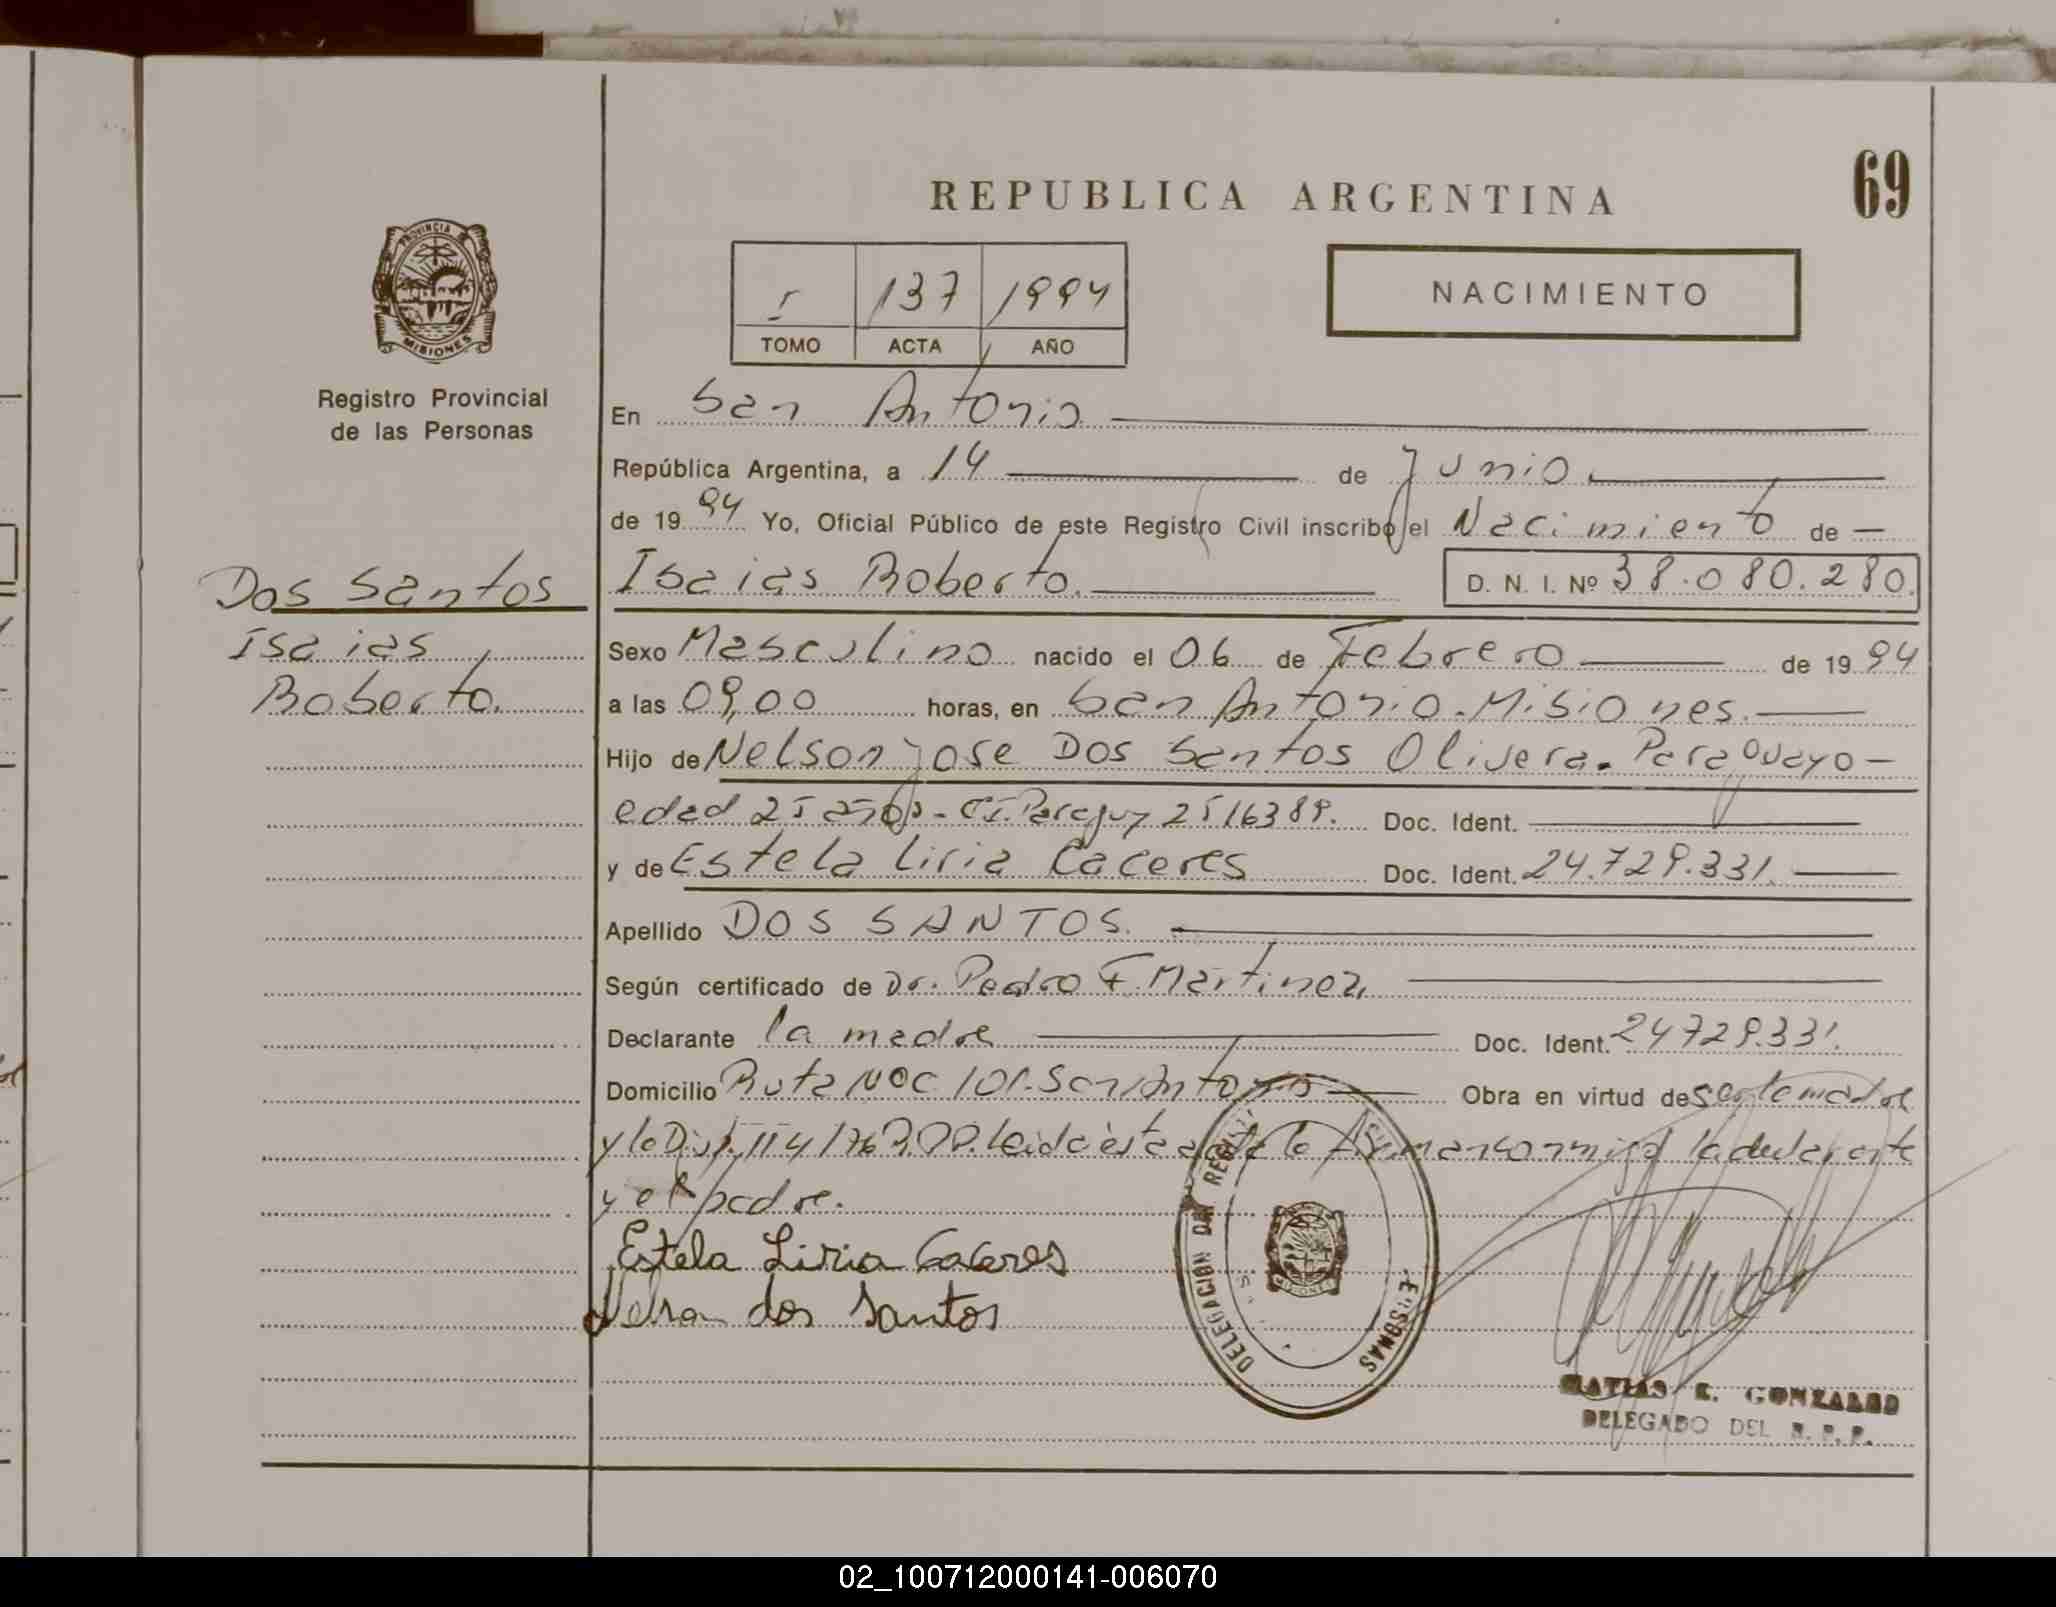 69
REPUBLICA ARGENTINA
PROVINCIA DE
MISIONES
I 137 1994
TOMO ACTA AÑO
NACIMIENTO
Registro Provincial
de las Personas
En San Antonio
República Argentina, a 14 de Junio
de 19 94 Yo, Oficial Público de este Registro Civil inscribo el Nacimiento de —
Dos Santos
Isaias
Roberto.
Isaias Roberto. D. N. I. Nº 38.080.280.
Sexo Masculino nacido el 06 de Febrero de 19 94
a las 09,00 horas, en San Antonio - Misiones.
Hijo de Nelson Jose Dos Santos Olivera. Paraguayo -
edad 25 años - C.I. Paraguay 2516389. Doc. Ident.
y de Estela Liria Caceres Doc. Ident. 24.729.331.
Apellido DOS SANTOS.
Según certificado de Dr. Pedro F. Martinez,
Declarante la madre Doc. Ident. 24729.331.
Domicilio Ruta Nac 101. San Antonio Obra en virtud de ser la madre
y la Disp. 114/76 Leida esta acta la Firman conmigo la declarante
y el padre.
Estela Liria Caceres
Nelson dos santos
DELEGACION DEL REGISTRO PERSONAS
MATIAS E. GONZALEZ
DELEGADO DEL R. P. P.
02_100712000141-006070